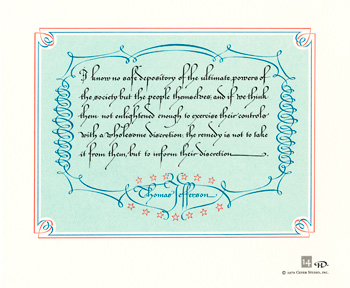 I know no safe depository of the ultimate powers
of the society but the people themselves; and if we think
them not enlightened enough to exercise their controls
with a wholesome discretion, the remedy is not to take
it from them, but to inform their discretion
Thomas Jefferson
14
© 1970 Geyer Studio, Inc.